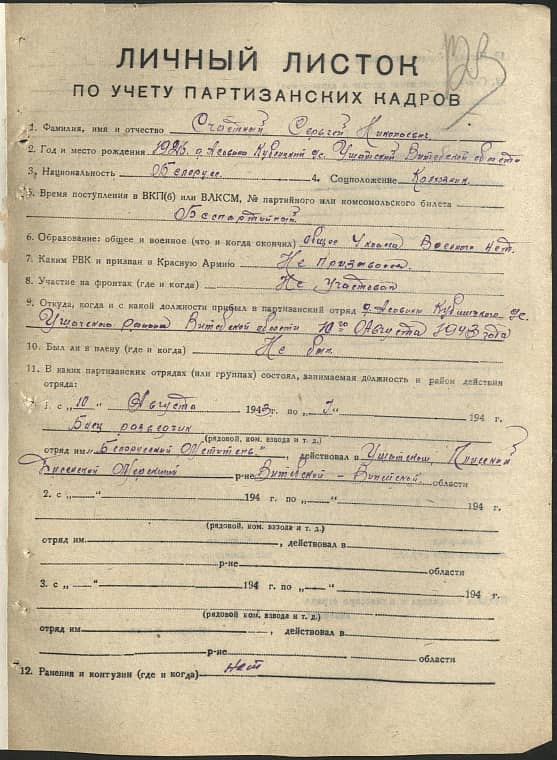 ЛИЧНЫЙ ЛИСТОК
ПО УЧЕТУ ПАРТИЗАНСКИХ КАДРОВ
1. Фамилия, имя и отчество Счастный Сергей Николаевич
2. Год и место рождения 1926 д. Асовины Ушачский Витебской области
3. Национальность Белорус 4. Соцположение Колхозник
5. Время поступления в ВКП(б) или ВЛКСМ, № партийного или комсомольского билета
Беспартийный
6. Образование: общее и военное (что и когда окончил) общее 4 класса Военного нет.
7. Каким РВК и призван в Красную Армию Не призывался
8. Участие на фронтах (где и когда) Не участвовал
9. Откуда, когда и с какой должности прибыл в партизанский отряд
Ушачского района Витебской области 10го Августа 1943 года
10. Был ли в плену (где и когда) Не был
11. В каких партизанских отрядах (или группах) состоял, занимаемая должность и район действия
отряда:
1. с „10" Августа 1943 г. по „ " 194 г.
Боец разведчик
(рядовой, ком. взвода и т. д.)
отряд им „Белорусский Мститель", действовал в Ушачском,
р-не Витебской – Вилейской области
2. с „ " 194 г. по „ " 194 г.
(рядовой, ком. взвода и т. д.)
отряд им. , действовал в
р-не области
3. с „ " 194 г. по „ " 194 г.
(рядовой, ком. взвода и т. д.)
отряд им , действовал в
р-не области
12. Ранения и контузии (где и когда) нет